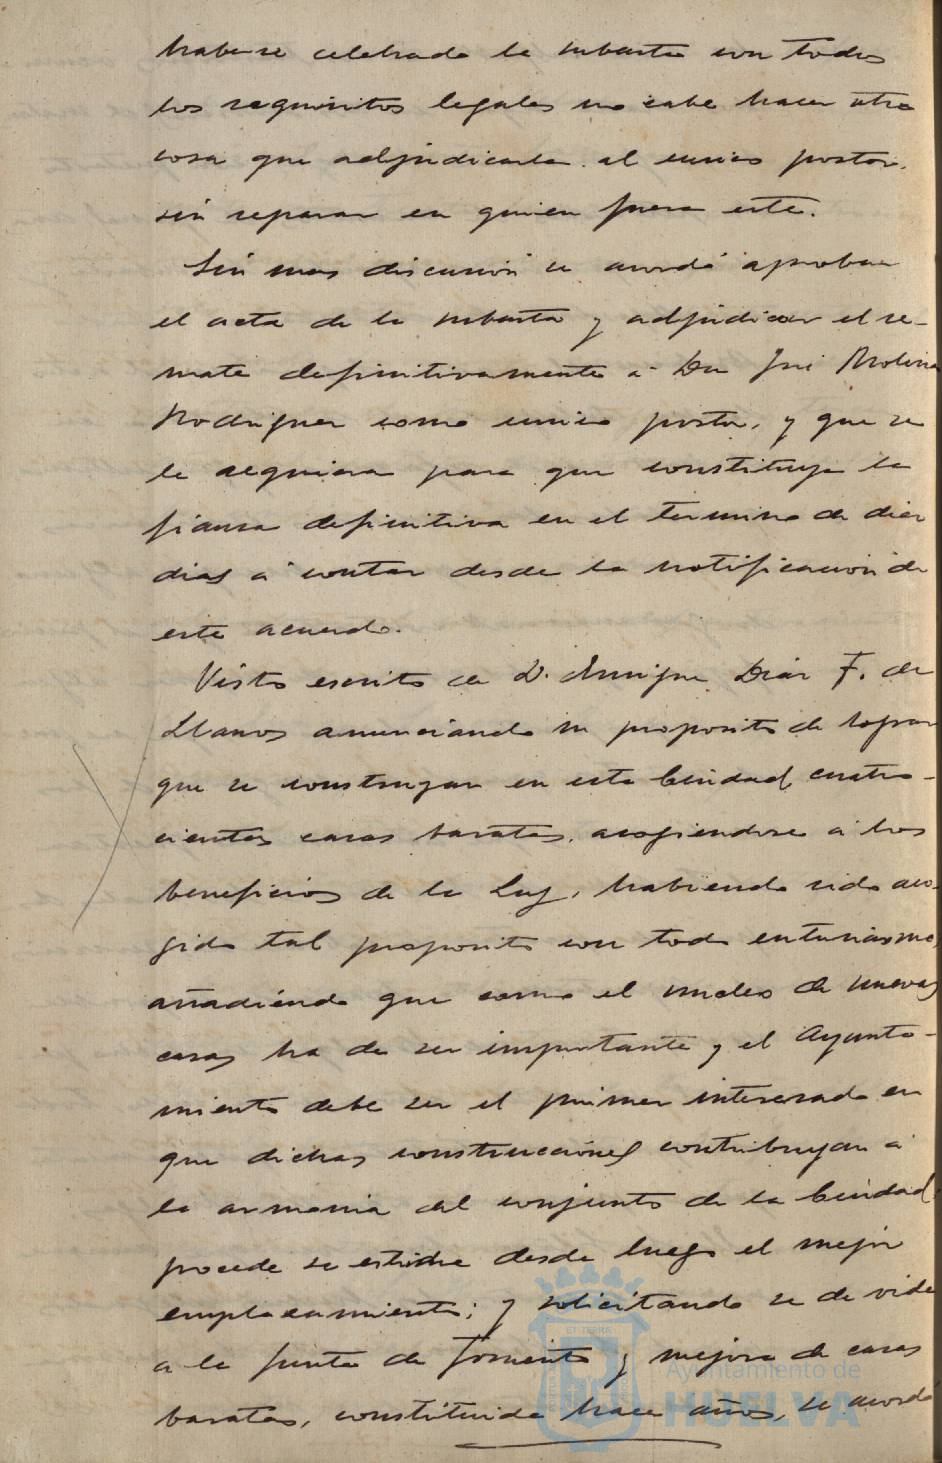 haberse celebrado la subasta con todos
los requisitos legales no cabe hacer otra
cosa que adjudicarla al unico postor,
sin reparar en quien fuera este.
Sin mas discusión se acordó aprobar
el acta de la subasta y adjudicar el re-
mate definitivamente á Don José Molina
Rodriguez como unico postor, y que se
le requiera para que constituya la
fianza definitiva en el termino de diez
dias á contar desde la notificación de
este acuerdo.
Visto escrito de D. Enrique Diaz F. de
Llanos anunciando su proposito de lograr
que se construyan en esta Ciudad cuatro-
cientas casas baratas, acogiendose á los
beneficios de la Ley, habiendo sido aco-
gido tal proposito con todo entusiasmo,
añadiendo que como el nucleo de nuevas
casas ha de ser importante y el Ayunta-
miento debe ser el primer interesado en
que dichas construcciones contribuyan á
la armonia del conjunto de la Ciudad
procede se estudie desde luego el mejor
emplazamiento; y solicitando se de vida
a la Junta de Fomento y mejora de casas
baratas, constituida hace años, se acordó
Ayuntamiento de
HUELVA